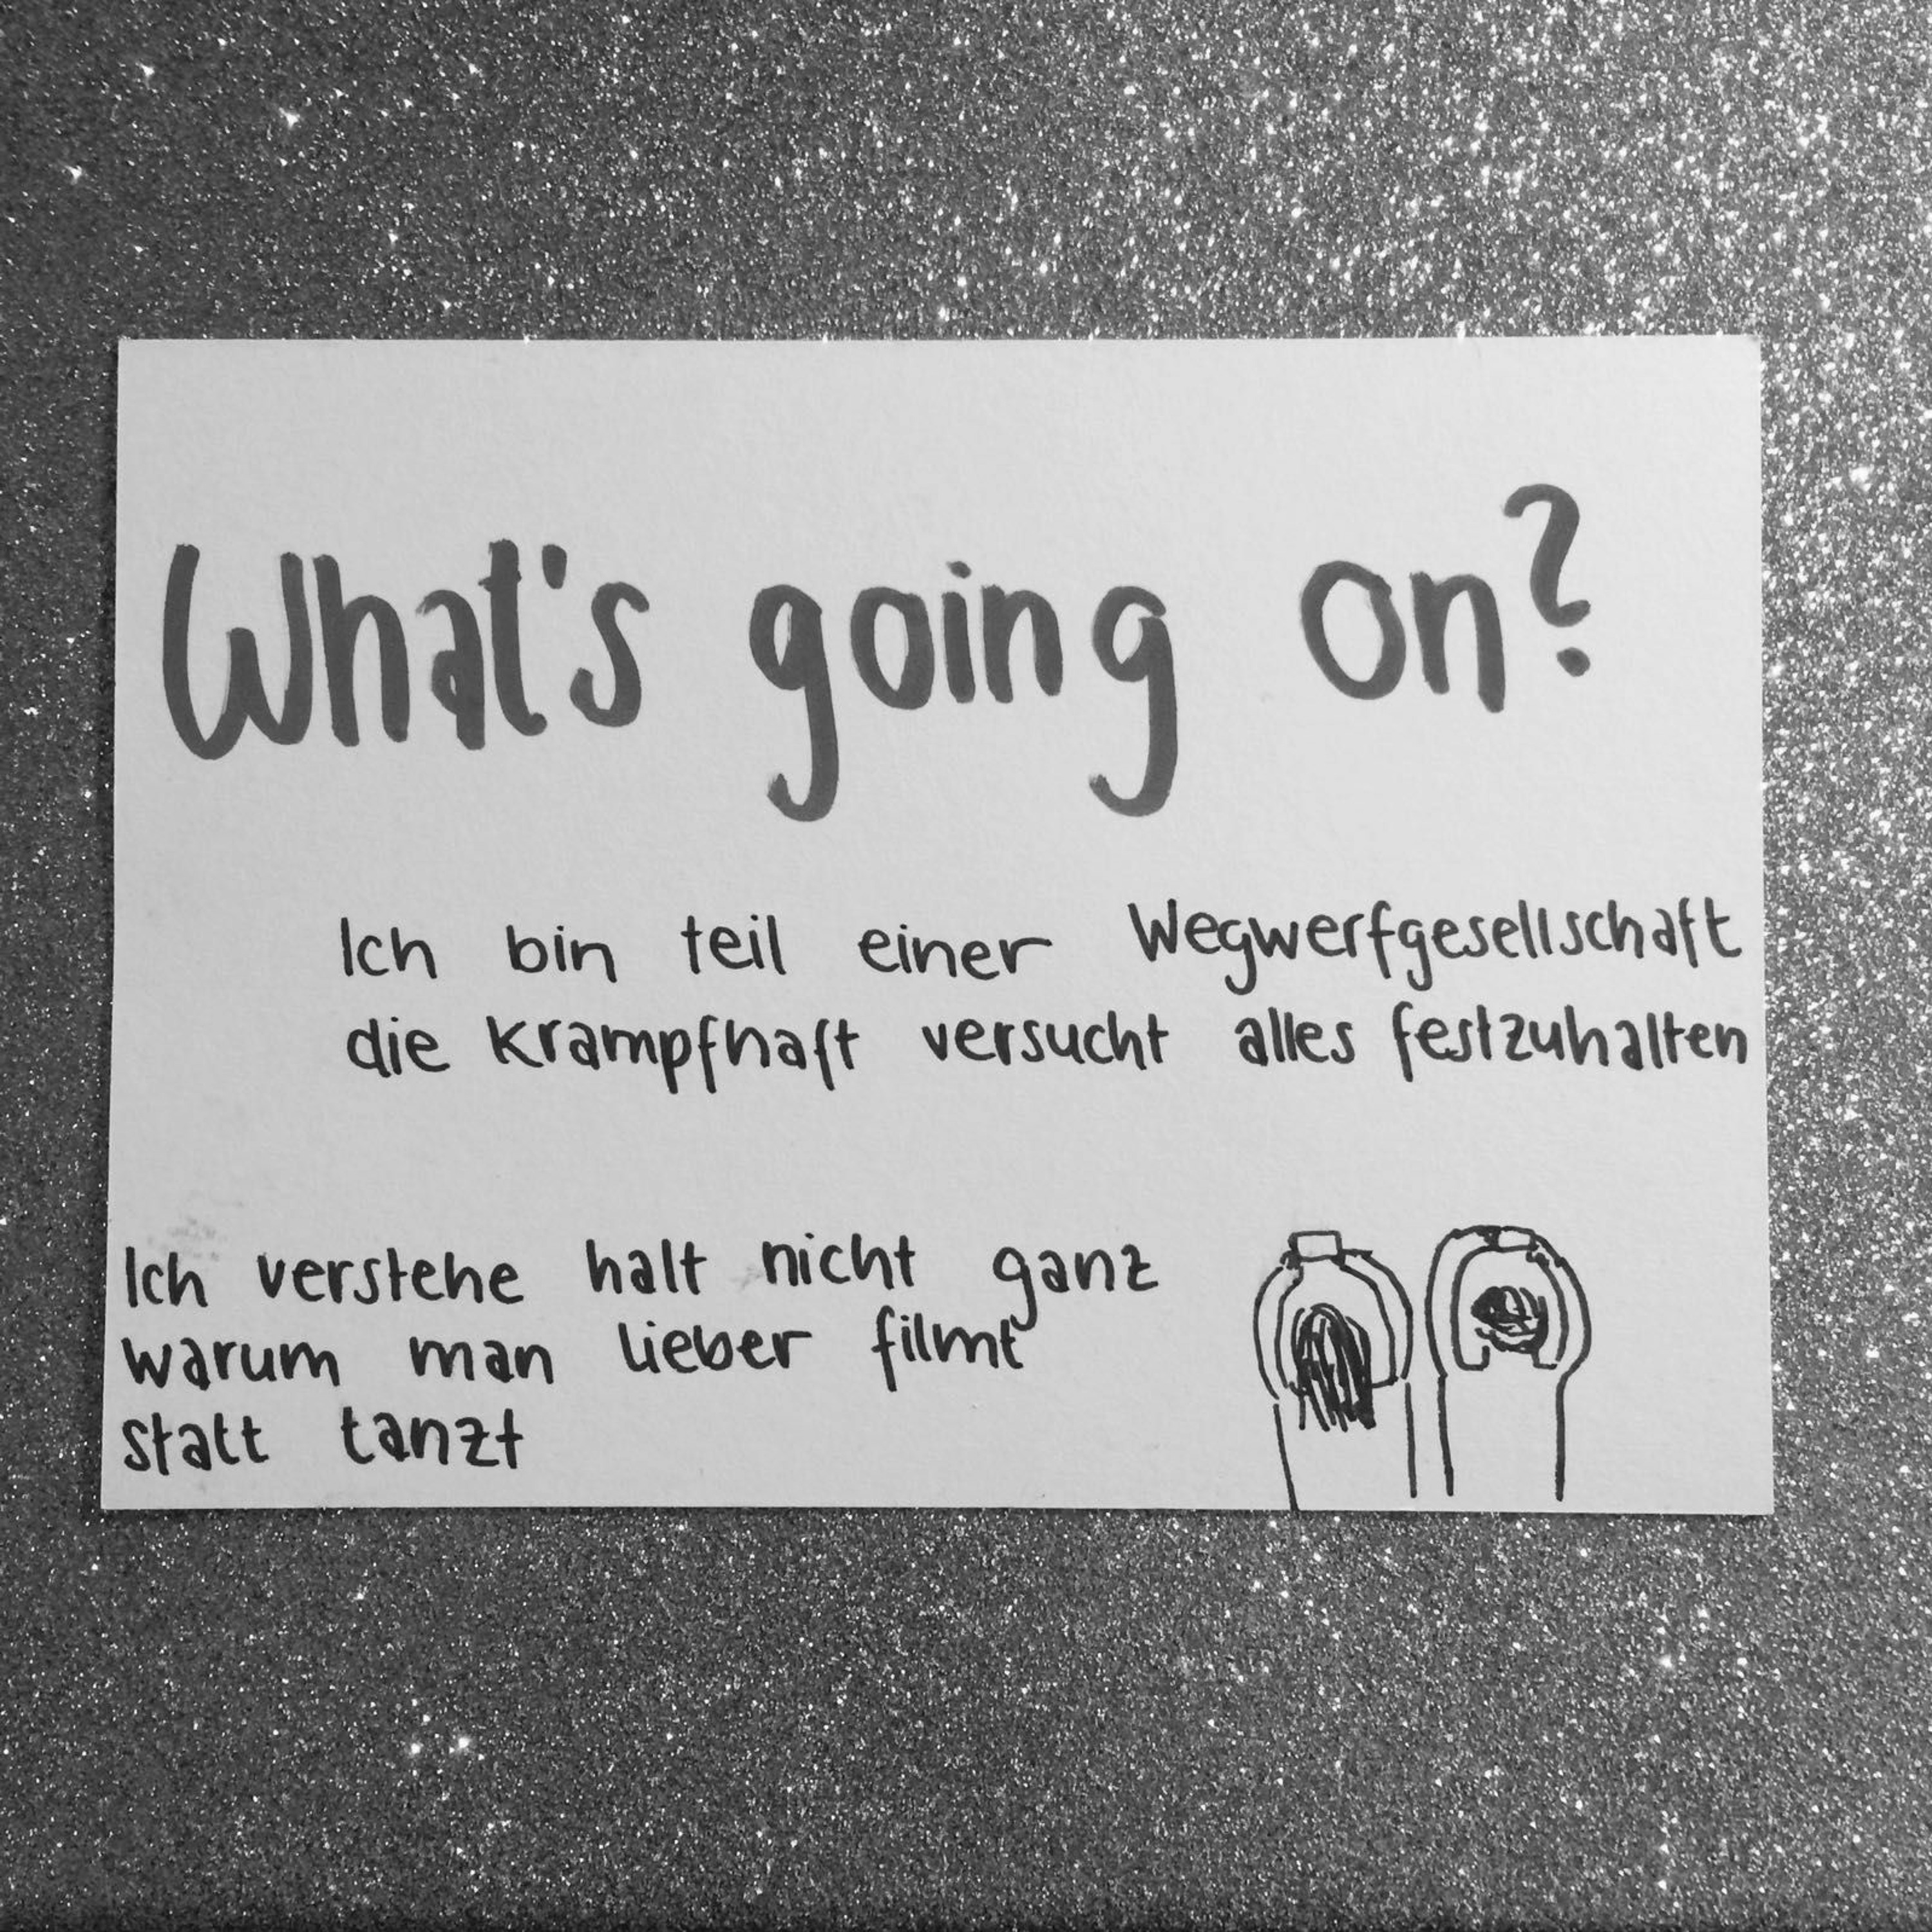 What's going on?
Ich bin teil einer Wegwerfgesellschaft
die krampfhaft versucht alles festzuhalten
Ich verstehe halt nicht ganz
warum man lieber filmt
statt tanzt